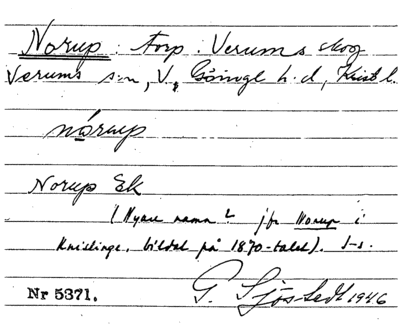 Norup: torp. Verums skog
Verums sn, V. Göinge h. d, Krist l.
nórup
Norup Ek
(Nyare namn? jfr Norup i
Knislinge, bildat på 1870-talet). I-s.
Nr 5371. G. Sjöstedt 1946